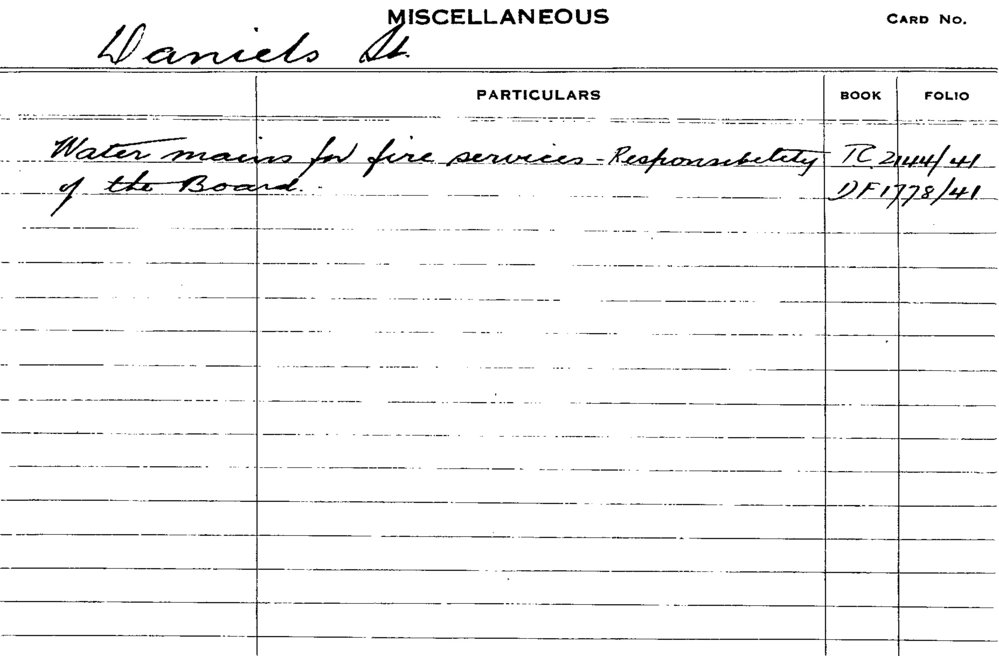 MISCELLANEOUS
CARD NO.
Daniels St.
PARTICULARS BOOK FOLIO
Water mains for fire services - Responsibility TC 2144/41
of the Board. DF 1778/41